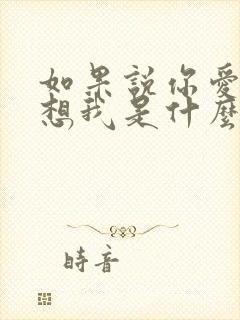 如果說你愛
想我是什麼
時音